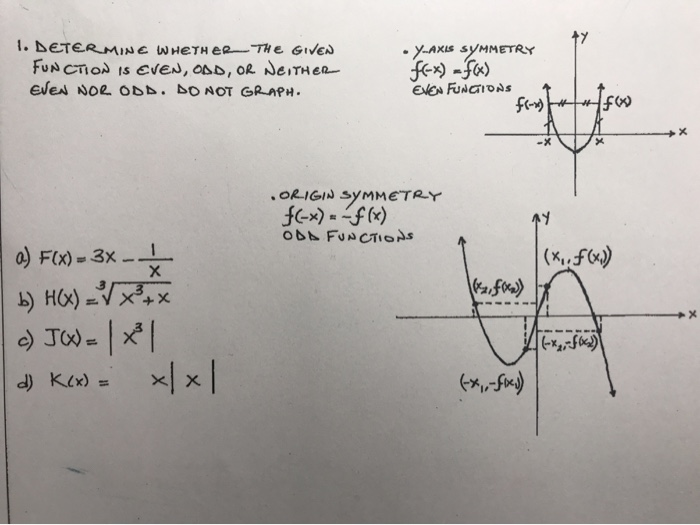 1. DETERMINE WHETHER THE GIVEN
FUNCTION IS EVEN, ODD, OR NEITHER
EVEN NOR ODD. DO NOT GRAPH.
• Y-AXIS SYMMETRY
f(-x) = f(x)
EVEN FUNCTIONS
y
f(-x)
f(x)
-x
x
x
• ORIGIN SYMMETRY
f(-x) = -f(x)
ODD FUNCTIONS
a) F(x) = 3x - 1/x
b) H(x) = ∛(x³+x)
c) J(x) = |x³|
d) K(x) = x|x|
y
(x₁, f(x₁))
(x₂, f(x₂))
x
(-x₂, -f(x₂))
(-x₁, -f(x₁))